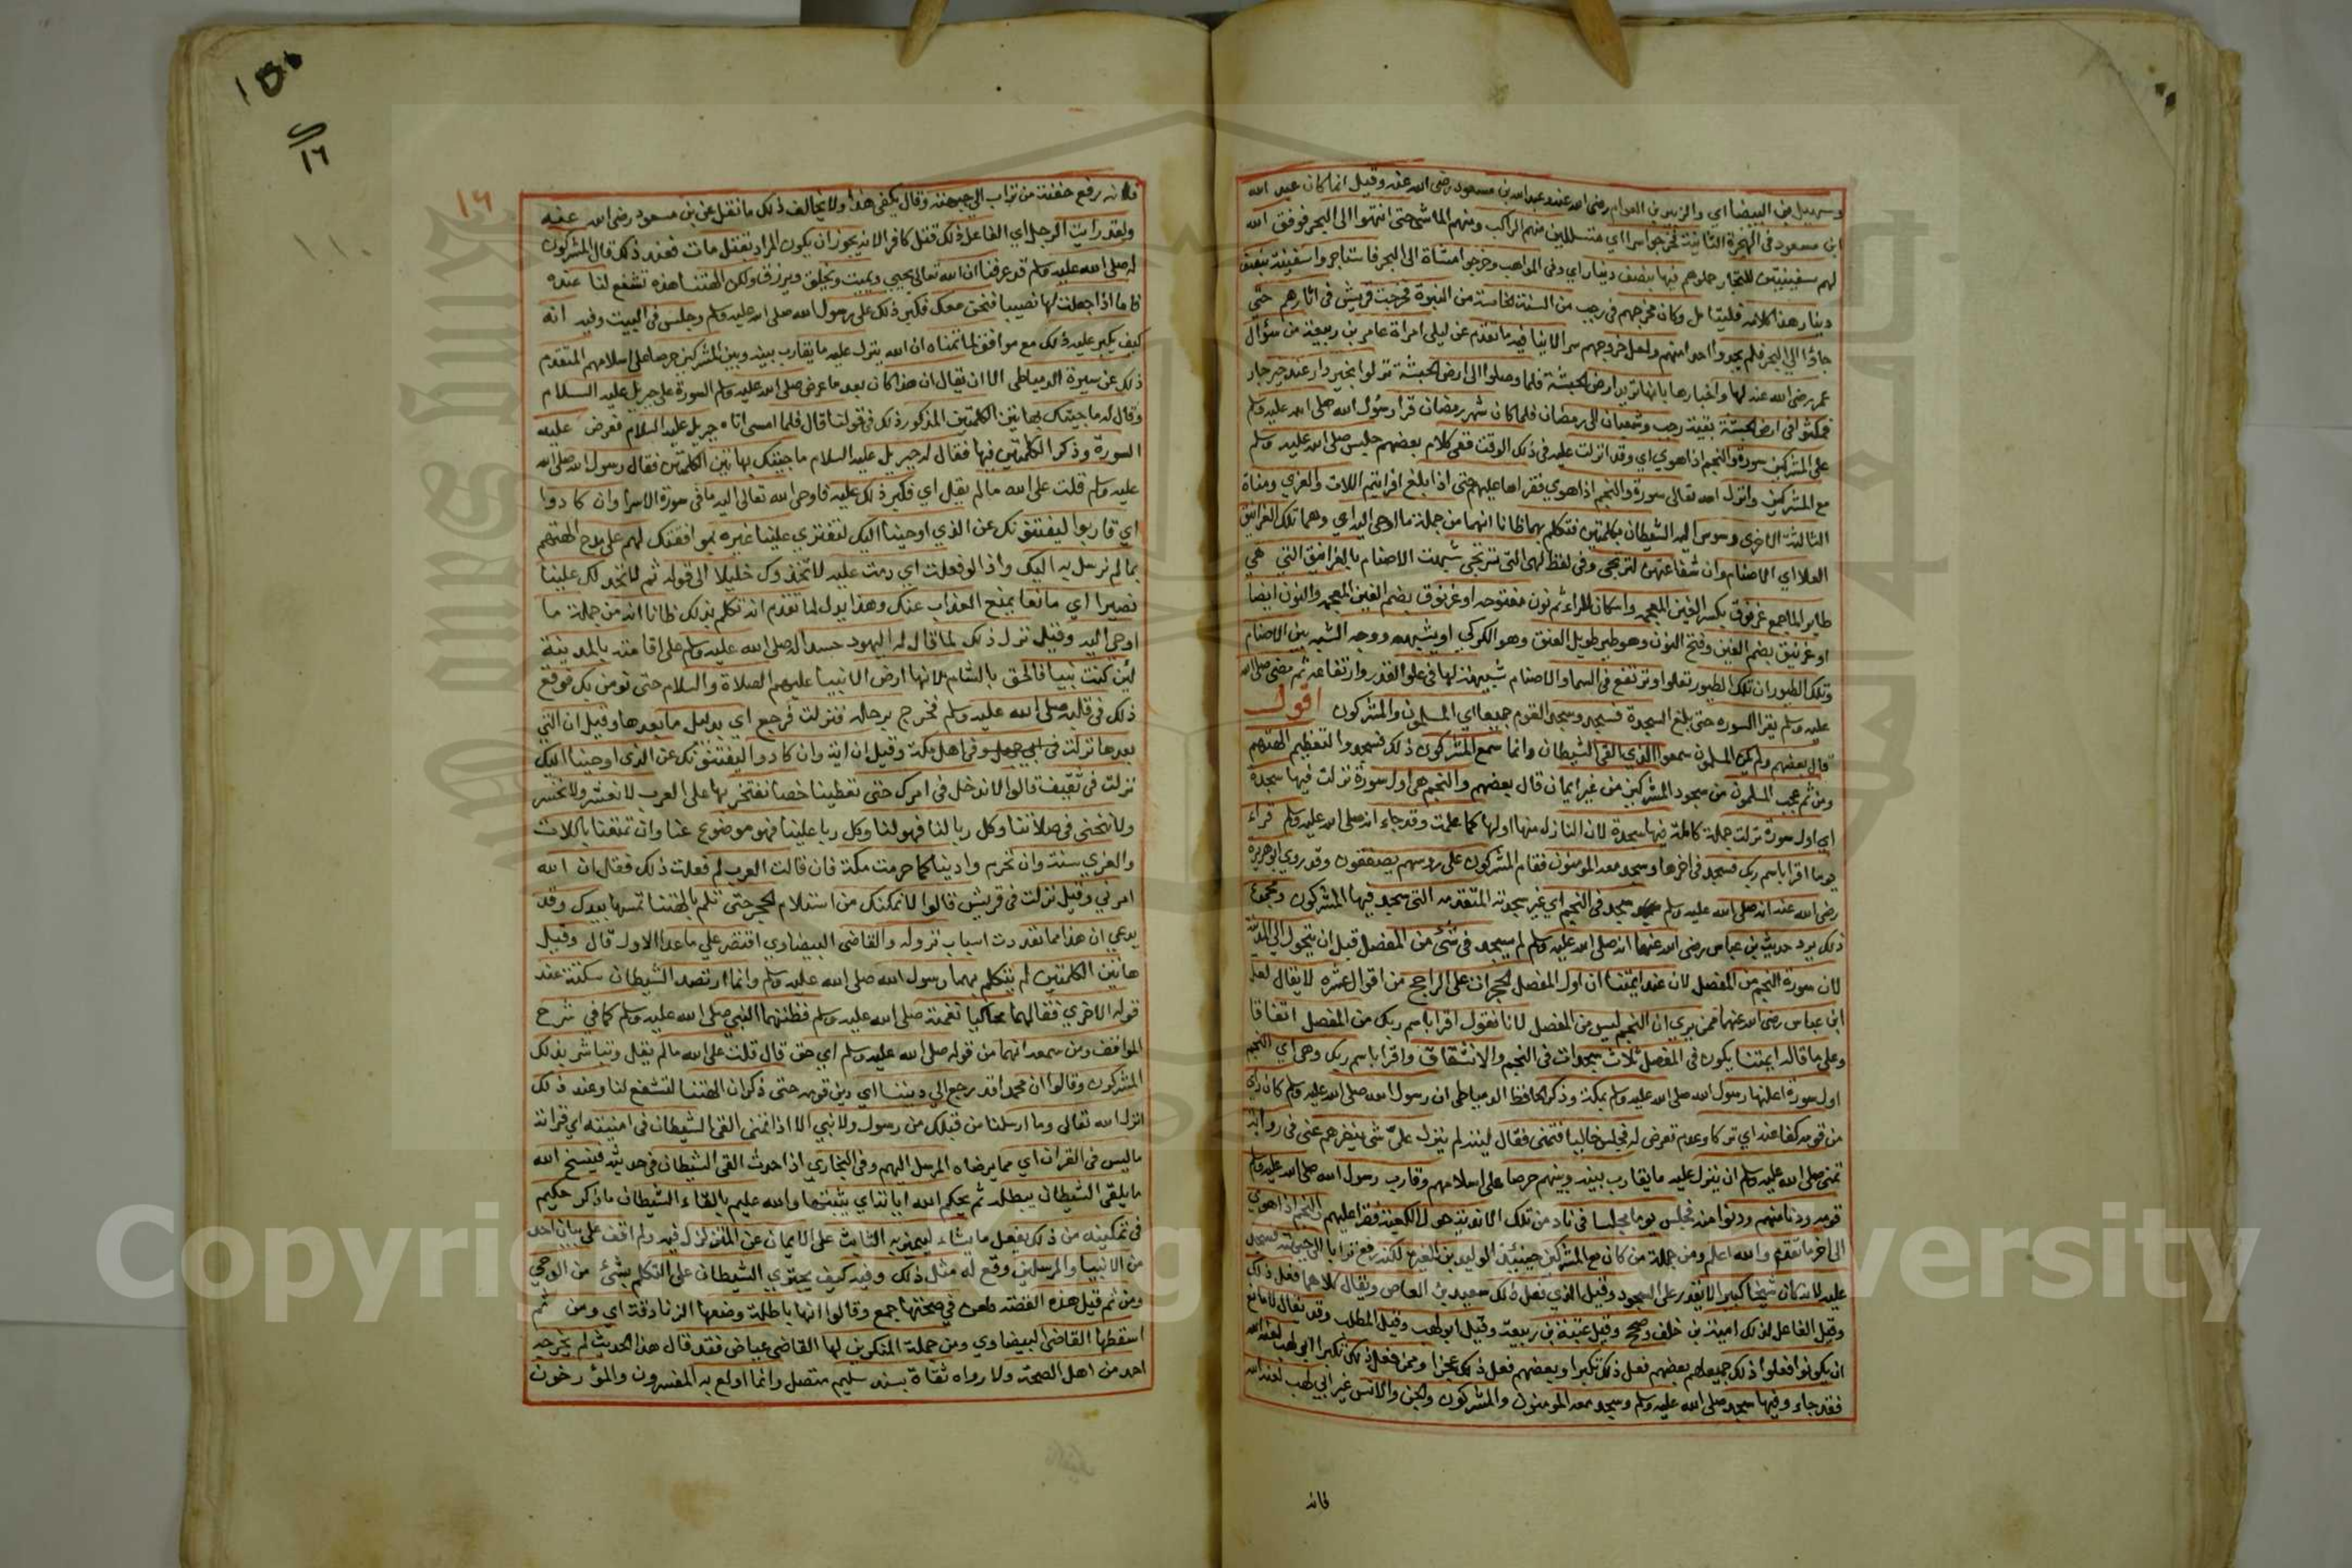 وسهيل بن البيضا اي والزبير بن العوام رضي الله عنه وعبد الله بن مسعود رضي الله عنه وقيل انما كان عبد الله
ابن مسعود في الهجرة الثانية فخرجوا سرا اي متسللين منهم الراكب ومنهم الماشي حتى انتهوا الى البحر فوفق الله
لهم سفينتين للتجار حملوهم فيها بنصف دينار اي وفي المواهب وخرجوا مشاة الى البحر فاستاجروا سفينة بنصف
دينار هذا كلامه فليتامل وكان مخرجهم في رجب من السنة الخامسة من النبوة فخرجت قريش في اثارهم حتى
جاؤا الى البحر فلم يجدوا احدا منهم ولعل خروجهم سرا لا ينافيه ما تقدم عن ليلى امراة عامر بن ربيعة من سؤال
عمر رضي الله عنه لها واخبارها بانها تريد ارض الحبشة فلما وصلوا الى ارض الحبشة نزلوا بخير دار عند خير جار
فمكثوا في ارض الحبشة بقية رجب وشعبان الى رمضان فلما كان شهر رمضان قرا رسول الله صلى الله عليه وسلم
على المشركين سورة والنجم اذا هوي اي وقد انزلت عليه في ذلك الوقت ففي كلام بعضهم جلس صلى الله عليه وسلم
مع المشركين وانزل الله تعالى سورة والنجم اذا هوي فقراها عليهم حتى اذا بلغ افرايتم اللات والعزي ومناة
الثالثة الاخرى وسوس اليه الشيطان بكلمتين فتكلم بهما ظانا انهما من جملة ما اوحي اليه اي وهما تلك الغرانيق
العلا اي الاصنام وان شفاعتهن لترتجى وفي لفظ لهي التي ترتجى شبهت الاصنام بالغرانيق التي هي
طاير الماء جمع غرنوق بكسر الغين المعجمه واسكان الراء ثم نون مفتوحه او غرنوق بضم الغين المعجمه والنون ايضا
او غرنيق بضم الغين وفتح النون وهو طير طويل العنق وهو الكركي او يشبهه ووجه الشبه بين الاصنام
وتلك الطيور ان تلك الطيور تعلوا وترتفع في السما والاصنام شبيهة بها في علو القدر وارتفاعه ثم مضى صلى الله
عليه وسلم يقرا السوره حتى بلغ السجدة فسجد وسجد القوم جميعا اي المسلمون والمشركون اقول
قال بعضهم ولم يكن المسلمون سمعوا الذي القى الشيطان وانما سمع المشركون ذلك فسجدوا لتعظيم الهتهم
ومن ثم عجب المسلمون من سجود المشركين من غير ايمان قال بعضهم والنجم هي اول سورة نزلت فيها سجدة
اي اول سورة نزلت جملة كاملة فيها سجدة لان النازل منها اولها كما علمت وقد جاء انه صلى الله عليه وسلم قراء
يوما اقرا باسم ربك فسجد في اخرها وسجد معه المومنون فقام المشركون على روسهم يصفقون وقد روي ابو هريرة
رضي الله عنه انه صلى الله عليه وسلم سجد في النجم اي غير سجدته المتقدمه التي سجد فيها المشركون ومجموع
ذلك يرد حديث بن عباس رضي الله عنهما انه صلى الله عليه وسلم لم يسجد في شئ من المفصل قبل ان يتحول الى المدينة
لان سورة النجم من المفصل لان عند ايمتنا ان اول المفصل الحجرات على الراجح من اقوال عشره لا يقال لعل
ابن عباس رضي الله عنهما ممن يري ان النجم ليس من المفصل لانا نقول اقرا باسم ربك من المفصل اتفاقا
وعلى ما قاله ايمتنا يكون في المفصل ثلاث سجدات في النجم والانشقاق واقرا باسم ربك وهي اي النجم
اول سورة اعلنها رسول الله صلى الله عليه وسلم بمكة وذكر الحافظ الدمياطي ان رسول الله صلى الله عليه وسلم كان راي
من قومه كفا عنه اي تركا وعدم تعرض له فجلس خاليا فتمنى فقال ليته لم ينزل عليّ شئ ينفرهم عني في رواية
تمنى صلى الله عليه وسلم ان ينزل عليه ما يقارب بينه وبينهم حرصا على اسلامهم وقارب رسول الله صلى الله عليه وسلم
قومه ودنا منهم ودنوا منه فجلس يوما مجلسا في ناد من تلك الاندية حول الكعبة فقرا عليهم والنجم اذا هوي
الى اخر ما تقدم والله اعلم ومن جملة من كان مع المشركين حينئذ الوليد بن المغيرة لكنه رفع ترابا الى جبهته فسجد
عليه لانه كان شيخا كبيرا لا يقدر على السجود وقيل الذي فعل ذلك سعيد بن العاص ويقال كلاهما فعل ذلك
وقيل الفاعل لذلك امية بن خلف وصحح وقيل عتبة بن ربيعة وقيل ابو لهب وقيل المطلب وقد يقال لا مانع
ان يكونوا فعلوا ذلك جميعا بعضهم فعل ذلك تكبرا وبعضهم فعل ذلك عجزا وممن فعل ذلك تكبرا ابو لهب لعنه الله
فقد جاء وفيها سجد صلى الله عليه وسلم وسجد معه المومنون والمشركون والجن والانس غير ابي لهب لعنه الله
فانه
١٦
فانه رفع حفنة من تراب الى جبهته وقال يكفي هذا ولا يخالف ذلك ما نقل عن بن مسعود رضي الله عنه
ولقد رايت الرجل اي الفاعل ذلك قتل كافرا لانه يجوز ان يكون المراد بقتل مات فعند ذلك قال المشركون
له صلى الله عليه وسلم قد عرفنا ان الله تعالى يحيي ويميت ويخلق ويرزق ولكن الهتنا هذه تشفع لنا عنده
فاما اذا جعلت لها نصيبا فنحن معك فكبر ذلك على رسول الله صلى الله عليه وسلم وجلس في البيت وفيه انه
كيف يكبر عليه ذلك مع موافقة لما تمناه ان الله ينزل عليه ما يقارب بينه وبين المشركين حرصا على اسلامهم المتقدم
ذلك عن سيرة الدمياطي الا ان يقال ان هذا كان بعد ما عرض صلى الله عليه وسلم السورة على جبريل عليه السلام
وقال له ما جيتك بهاتين الكلمتين المذكور ذلك في قولنا قال فلما امسى اتاه جبريل عليه السلام فعرض عليه
السورة وذكر الكلمتين فيها فقال له جبريل عليه السلام ما جيتك بهاتين الكلمتين فقال رسول الله صلى الله
عليه وسلم قلت على الله ما لم يقل اي فكبر ذلك عليه فاوحى الله تعالى اليه ما في سورة الاسرا وان كادوا
اي قاربوا ليفتنونك عن الذي اوحينا اليك لتفتري علينا غيره بموافقتك لهم على مدح الهتهم
بما لم نرسل به اليك واذا لو فعلت اي دمت عليه لاتخذوك خليلا الى قوله ثم لا تجد لك علينا
نصيرا اي مانعا يمنع العذاب عنك وهذا يدل لما تقدم انه تكلم بذلك ظانا انه من جملة ما
اوحي اليه وقيل نزل ذلك لما قال له اليهود حسدا له صلى الله عليه وسلم على اقامته بالمدينة
لئن كنت نبيا فالحق بالشام لانها ارض الانبيا عليهم الصلاة والسلام حتى نومن بك فوقع
ذلك في قلبه صلى الله عليه وسلم فخرج برحله فنزلت فرجع اي بدليل ما بعدها وقيل ان التي
بعدها نزلت في ابي جهل وفي اهل مكة وقيل ان اية وان كادوا ليفتنونك عن الذي اوحينا اليك
نزلت في ثقيف قالوا لا ندخل في امرك حتى تعطينا خصا نفتخر بها على العرب لا نعشر ولا نحشر
ولا ننحني في صلاتنا وكل ربا لنا فهو لنا وكل ربا علينا فهو موضوع عنا وان تمتعنا باللات
والعزي سنة وان تحرم وادينا كما حرمت مكة فان قالت العرب لم فعلت ذلك فقل ان الله
امرني وقيل نزلت في قريش قالوا لا نمكنك من استلام الحجر حتى تلم بالهتنا تمسها بيدك وقد
يدعي ان هذا مما تعددت اسباب نزوله والقاضي البيضاوي اقتصر علي ما عدا الاول قال وقيل
هاتين الكلمتين لم يتكلم بهما رسول الله صلى الله عليه وسلم وانما ارتصد الشيطان سكتة عند
قوله الاخري فقالهما محاكيا نغمته صلى الله عليه وسلم فظنهما النبي صلى الله عليه وسلم كما في شرح
المواقف ومن سمعه انهما من قوله صلى الله عليه وسلم اي حتى قال قلت على الله ما لم يقل وتباشر بذلك
المشركون وقالوا ان محمدا قد رجع الى ديننا اي دين قومه حتى ذكر ان الهتنا لتشفع لنا وعند ذلك
انزل الله تعالى وما ارسلنا من قبلك من رسول ولا نبي الا اذا تمنى القى الشيطان في امنيته اي قراته
ما ليس في القران اي مما يرضاه المرسل اليهم وفي البخاري اذا حدث القى الشيطان في حديثه فينسخ الله
ما يلقي الشيطان يبطله ثم يحكم الله اياته اي يثبتها والله عليم بالقاء الشيطان ما ذكر حكيم
في تمكينه من ذلك يفعل ما يشاء ليميز به الثابت على الايمان عن المتزلزل فيه ولم اقف على بيان احد
من الانبيا والمرسلين وقع له مثل ذلك وفيه كيف يجتري الشيطان على التكلم بشئ من الوحي
ومن ثم قيل هذه القصة طعن في صحتها جمع وقالوا انها باطلة وضعها الزنادقة اي ومن ثم
اسقطها القاضي البيضاوي ومن جملة المنكرين لها القاضي عياض فقد قال هذا الحديث لم يخرجه
احد من اهل الصحة ولا رواه ثقاة بسند سليم متصل وانما اولع به المفسرون والمؤرخون
Copyright © King Saud University